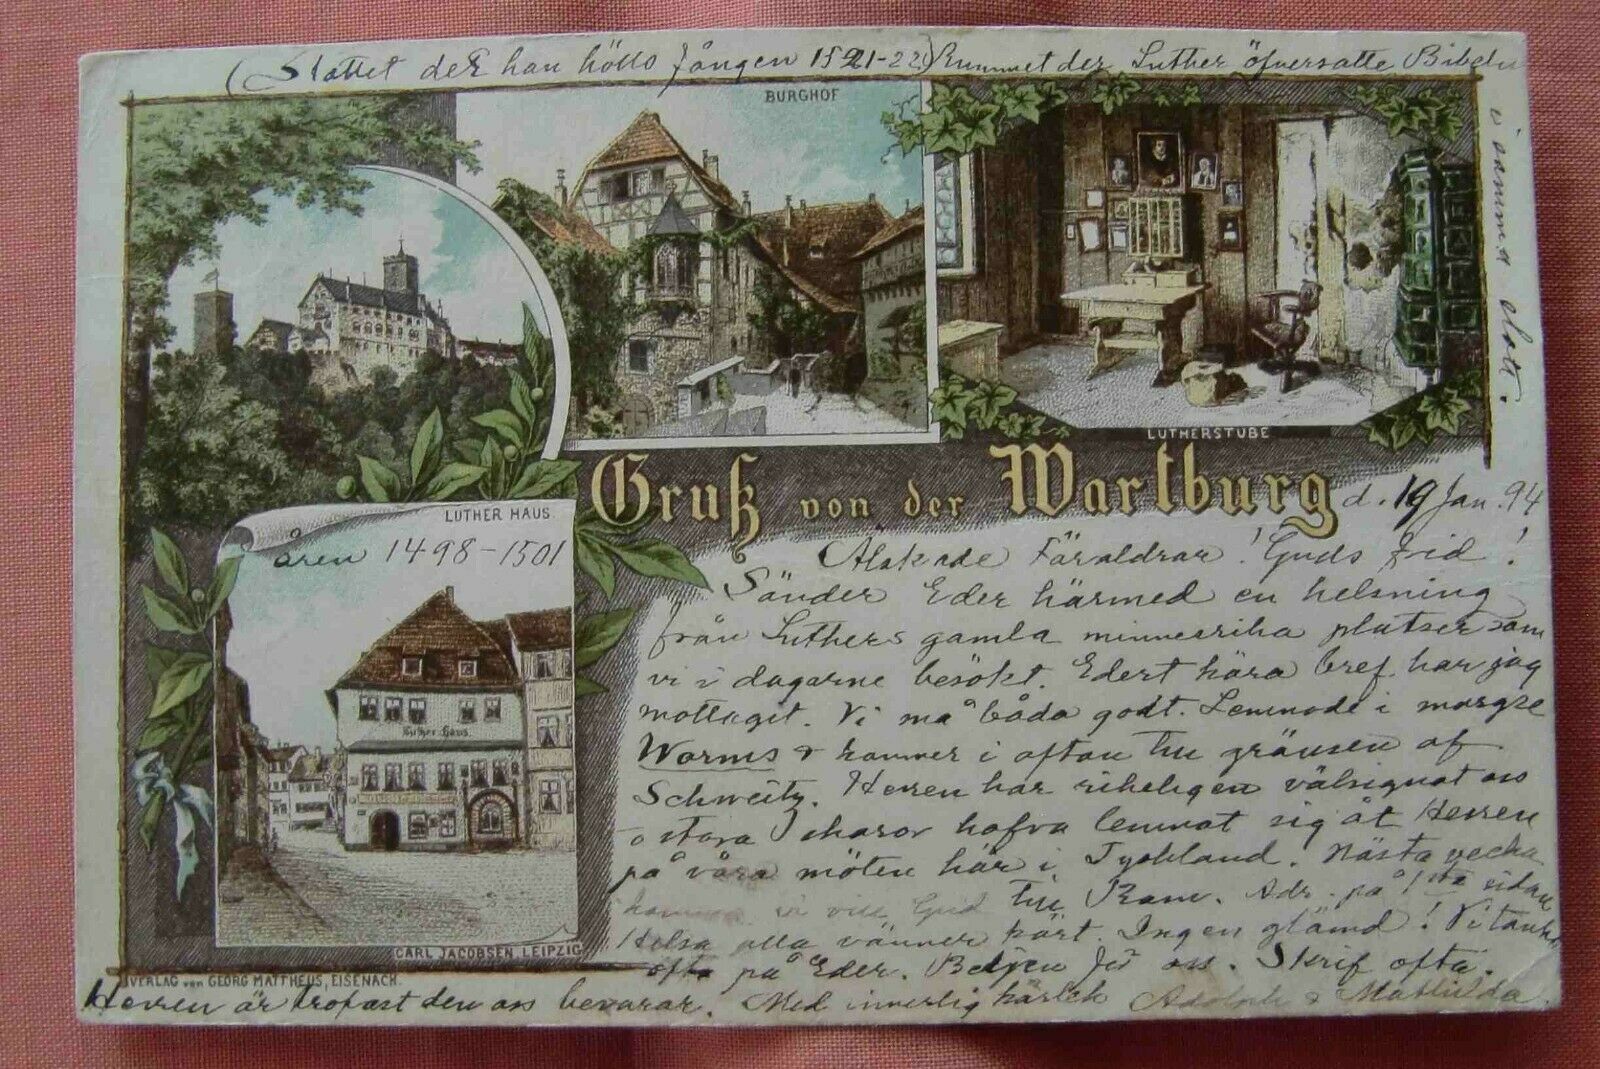 (Slottet der han hölls fången 1521-22) Rummet der Luther öfversatte Bibeln
i samma slott.
BURGHOF
LUTHERSTUBE
Gruß von der Wartburg
d. 19 Jan. 94
LUTHER HAUS.
åren 1498-1501
Luther Haus
Älskade Föräldrar! Guds frid!
Sänder Eder härmed en helsning
från Luthers gamla minnesrika platser som
vi i dagarne besökt. Edert kära bref har jag
mottagit. Vi må båda godt. Lemnade i morgse
Worms & kommer i afton till gränsen af
Schweitz. Herren har rikeligen välsignat oss
o stora skaror hafva lemnat sig åt Herren
på våra möten här i Tyskland. Nästa vecka
komma vi vill Gud till Rom. Adr. på 1sta sidan
Helsa alla vänner kärt. Ingen glömd! Vi tänka
ofta på Eder. Bedjen för oss. Skrif ofta.
Herren är trofast den oss bevarar. Med innerlig kärlek Adolph & Mathilda.
CARL JACOBSEN, LEIPZIG
VERLAG von GEORG MATTHEUS, EISENACH.